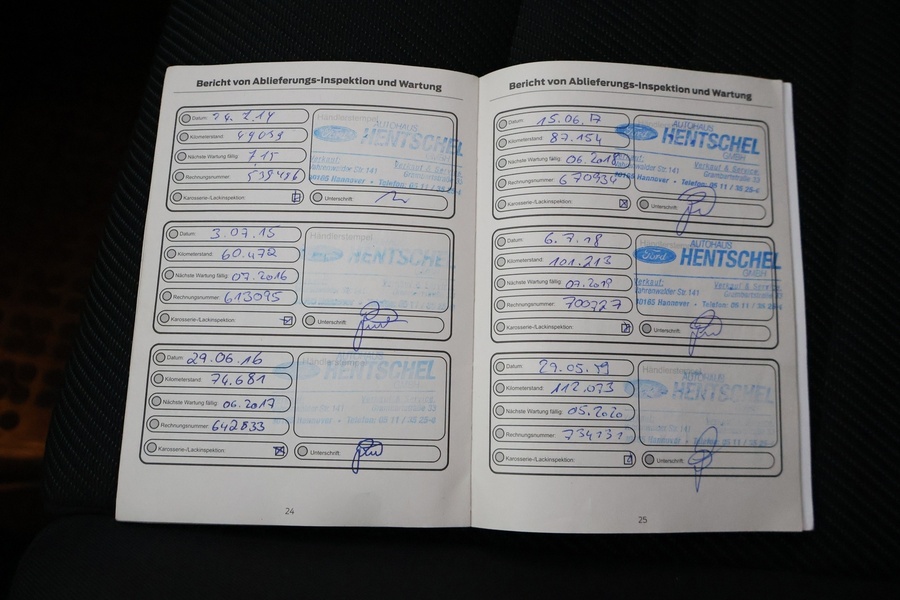 Bericht von Ablieferungs-Inspektion und Wartung
Datum:
Kilometerstand: 49039
Nächste Wartung fällig: 7 15
Rechnungsnummer: 539486
Karosserie-/Lackinspektion:
Händlerstempel
Ford AUTOHAUS
HENTSCHEL
Verkauf: Verkauf & Service:
30165 Hannover • Telefon: 05 11 / 35 25-6
Unterschrift:
Datum: 3.07.15
Kilometerstand: 60.472
Nächste Wartung fällig: 07.2016
Rechnungsnummer: 613095
Karosserie-/Lackinspektion:
Händlerstempel
HENTSCHEL
Unterschrift:
Datum: 29.06.16
Kilometerstand: 74.681
Nächste Wartung fällig: 06.2017
Rechnungsnummer: 642833
Karosserie-/Lackinspektion:
Händlerstempel
HENTSCHEL
Hannover • Telefon: 05 11 / 35 25-6
Unterschrift:
24
Bericht von Ablieferungs-Inspektion und Wartung
Datum: 15.06.17
Kilometerstand: 87.154
Nächste Wartung fällig: 06.2018
Rechnungsnummer: 670934
Karosserie-/Lackinspektion:
Ford AUTOHAUS
HENTSCHEL
GMBH
Verkauf: Verkauf & Service:
30165 Hannover • Telefon: 05 11 / 35 25-6
Unterschrift:
Datum: 6.7.18
Kilometerstand: 101.213
Nächste Wartung fällig: 07.2019
Rechnungsnummer: 700727
Karosserie-/Lackinspektion:
Ford AUTOHAUS
HENTSCHEL
GMBH
Verkauf: Verkauf & Service:
30165 Hannover • Telefon: 05 11 / 35 25-6
Unterschrift:
Datum: 29.05.19
Kilometerstand: 112.073
Nächste Wartung fällig: 05.2020
Rechnungsnummer: 734131
Karosserie-/Lackinspektion:
Händlerstempel
AUTOHAUS
HENTSCHEL
Unterschrift:
25